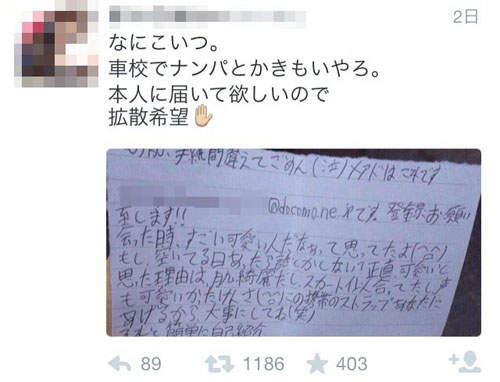 2日
なにこいつ。
車校でナンパとかきもいやろ。
本人に届いて欲しいので
拡散希望✋
手紙間違えてごめん(;±)メアドはこれです
@docomo.ne.jpです。登録お願い
致します!!
会った時、すごい可愛い人だなぁって思ってたよ(^^)
もし、空いてる日あったら遊びしない?正直可愛いと
思った理由は、肌綺麗だし、スカート似合ってたし
も可愛いかったけんさ(^^)この携帯のストラップあなたに
あげるから大事にしてね(笑)
簡単に自己紹介
89 1186 403